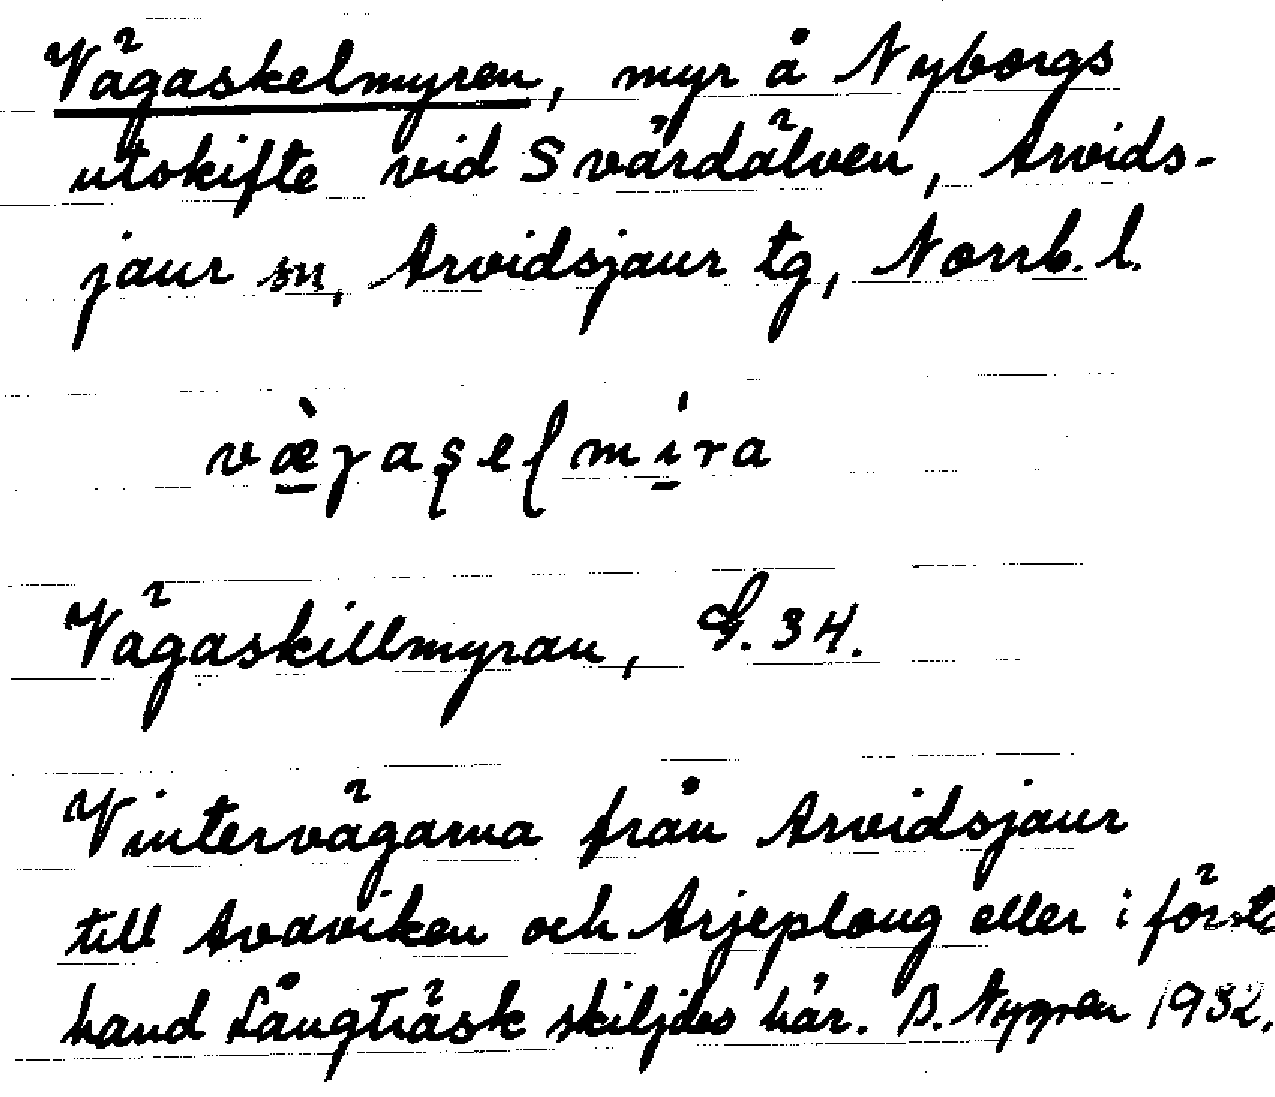 Vägaskelmyren, myr å Nyborgs
utskifte vid Svärdälven, Arvids-
jaur sn, Arvidsjaur tg, Norrb. l.
væ̀gaşelmira
Vägaskillmyran, G. 34.
Vintervägarna från Arvidsjaur
till Avaviken och Arjeploug eller i första
hand Långträsk skiljdes här. B. Nygren 1932.